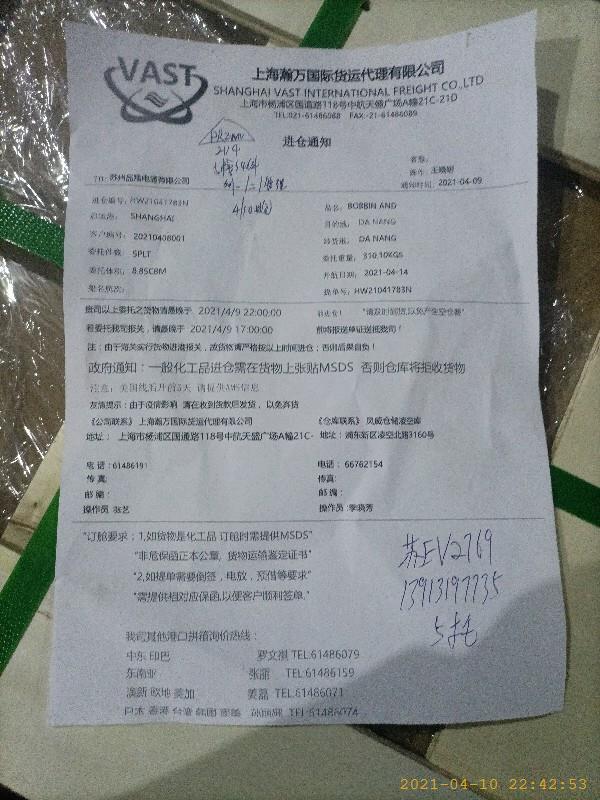 VAST
上海瀚万国际货运代理有限公司
SHANGHAI VAST INTERNATIONAL FREIGHT CO.,LTD
上海市杨浦区国道路118号中航天盛广场A幢21C-21D
TEL:021-61486068 FAX:-21-61486089
进仓通知
214
4/10
TO: 苏州品瑞电器有限公司
操作: 王晓妍
通知时间: 2021-04-09
进仓编号: HW21041783N
品名: BOBBIN AND
启运港: SHANGHAI
目的港: DA NANG
客户编号: 20210408001
卸货港: DA NANG
委托件数: 5PLT
委托重量: 310.10KGS
委托体积: 8.85CBM
开航日期: 2021-04-14
船名航次:
提单号: HW21041783N
贵司以上委托之货物请最晚于 2021/4/9 22:00:00
"请及时到货,以免产生空仓费"
若委托我司报关,请最晚于 2021/4/9 17:00:00
前将报关单证送抵我司!
注:由于海关实行货物进港报关,故货物请严格按以上时间进仓;否则后果自负!
政府通知:一般化工品进仓需在货物上张贴MSDS 否则仓库将拒收货物
注意:美国线船开前5天 请提供AMS信息
友情提示:由于疫情影响 请在收到货款后发货,以免弃货
《公司联系》上海瀚万国际货运代理有限公司
《仓库联系》凤威仓储凌空库
地址: 上海市杨浦区国通路118号中航天盛广场A幢21C-
地址: 浦东新区凌空北路3160号
电话:61486191
电话: 66762154
传真:
传真:
邮编:
邮编:
操作员 张艺
操作员:李焕芳
"订舱要求:1,如货物是化工品 订舱时需提供MSDS"
"非危保函正本公章, 货物运输鉴定证书"
"2,如提单需要倒签,电放,预借等要求"
"需提供相对应保函,以便客户顺利签单."
苏EV2769
13913197735
5托
我司其他港口拼箱询价热线:
中东 印巴 罗文祺 TEL:61486079
东南亚 张丽 TEL:61486159
澳新 欧地 美加 姜磊 TEL:61486071
日本 香港 台湾 韩国 TEL:61486074
2021-04-10 22:42:53